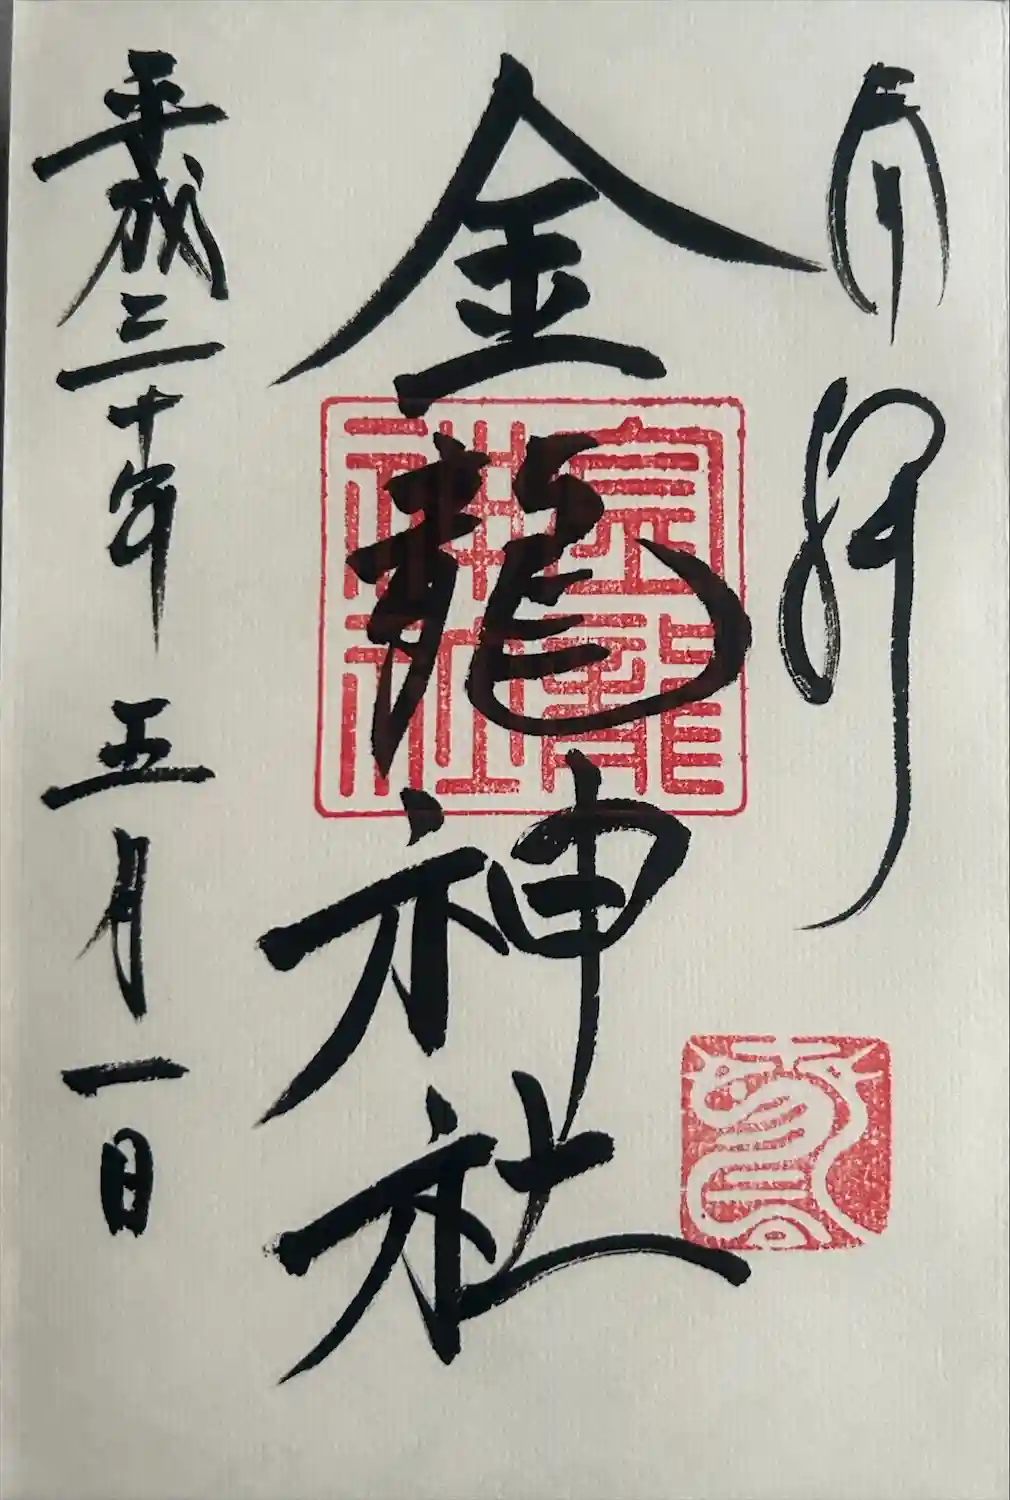 奉拝
金龍神社
金龍神社
平成三十年 五月一日